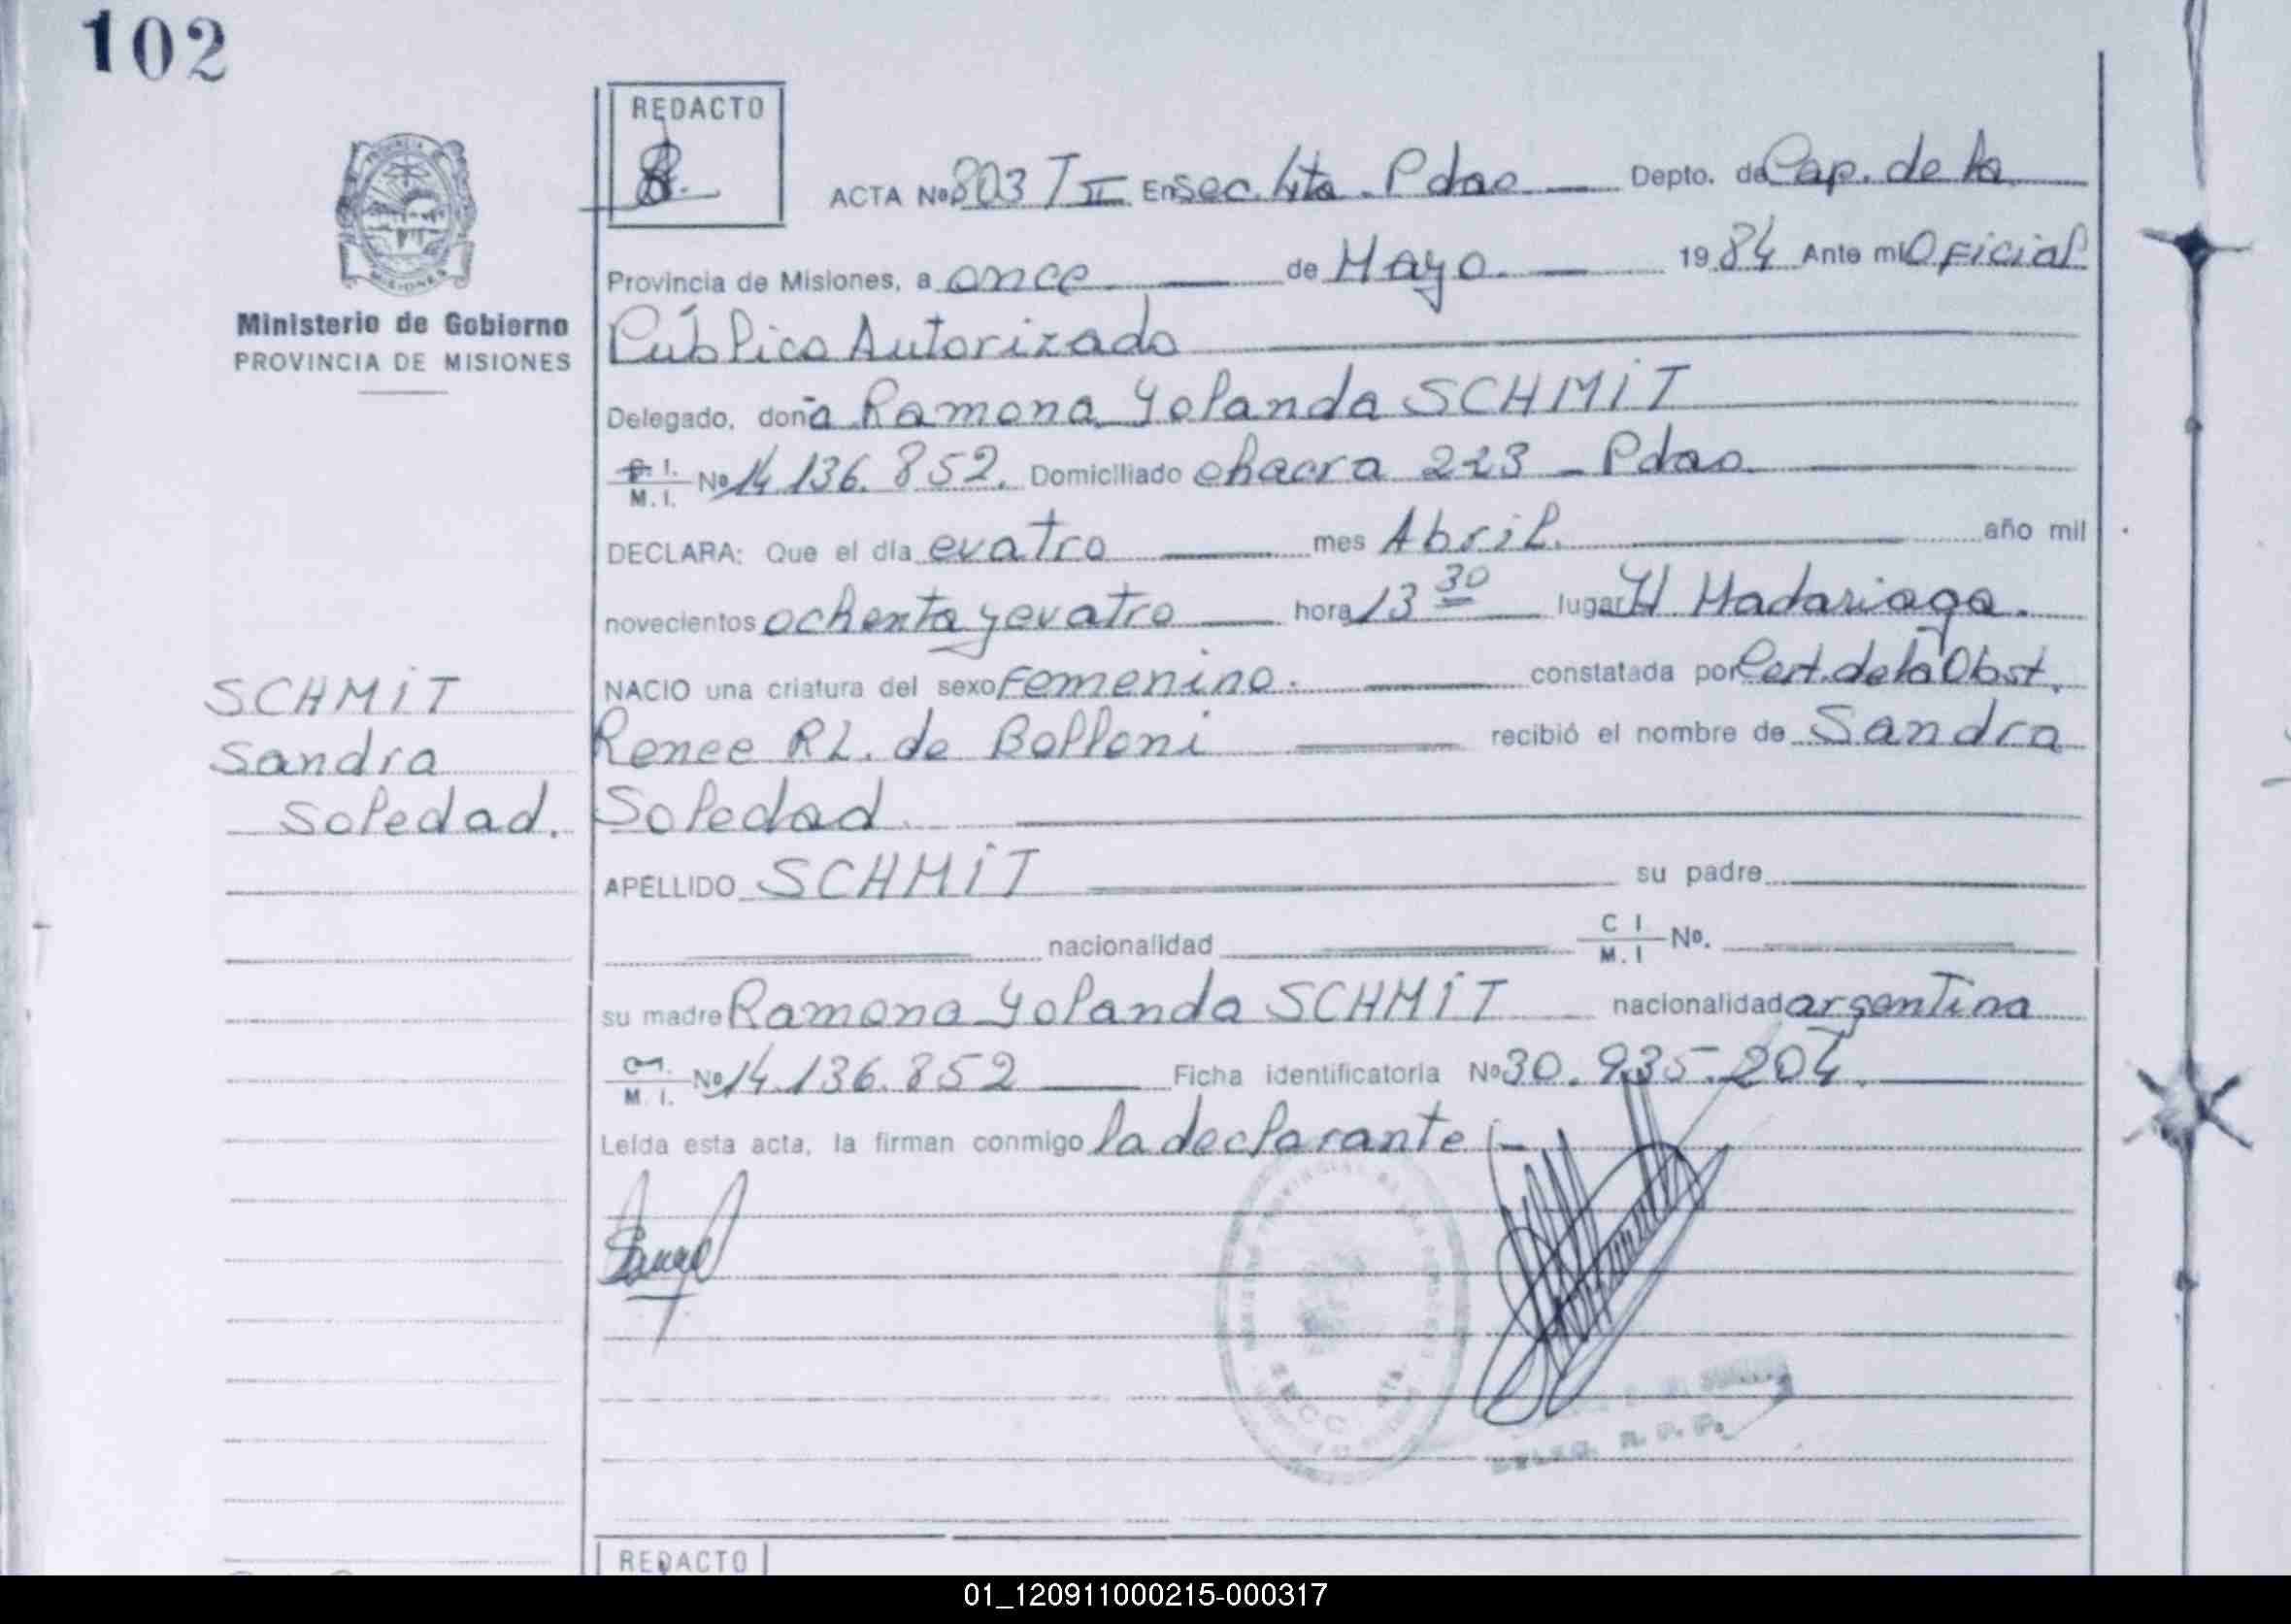 102
REDACTO
ACTA Nº 803 T II En Sec. 4ta. Pdas Depto. de Cap. de la
Provincia de Misiones, a once de Mayo. 1984 Ante mi Oficial
Público Autorizado
Delegado, doña Ramona Yolanda SCHMIT
C. I.
M. I. Nº 14.136.852. Domiciliado chacra 223 - Pdas.
DECLARA: Que el día cuatro mes Abril. año mil
novecientos ochenta y cuatro hora 13 30 lugar H Madariaga.
NACIO una criatura del sexo Femenino. constatada por Cert. de la Obst.
Renee RL. de Bolloni recibió el nombre de Sandra
Soledad.
APELLIDO SCHMIT su padre
nacionalidad C I
M. I Nº.
su madre Ramona Yolanda SCHMIT nacionalidad argentina
M. I. Nº 14.136.852 Ficha identificatoria Nº 30.935.204.
Leída esta acta, la firman conmigo la declarante.-
Ministerio de Gobierno
PROVINCIA DE MISIONES
SCHMIT
Sandra
Soledad.
SECC. 4ta.
REDACTO
01_120911000215-000317